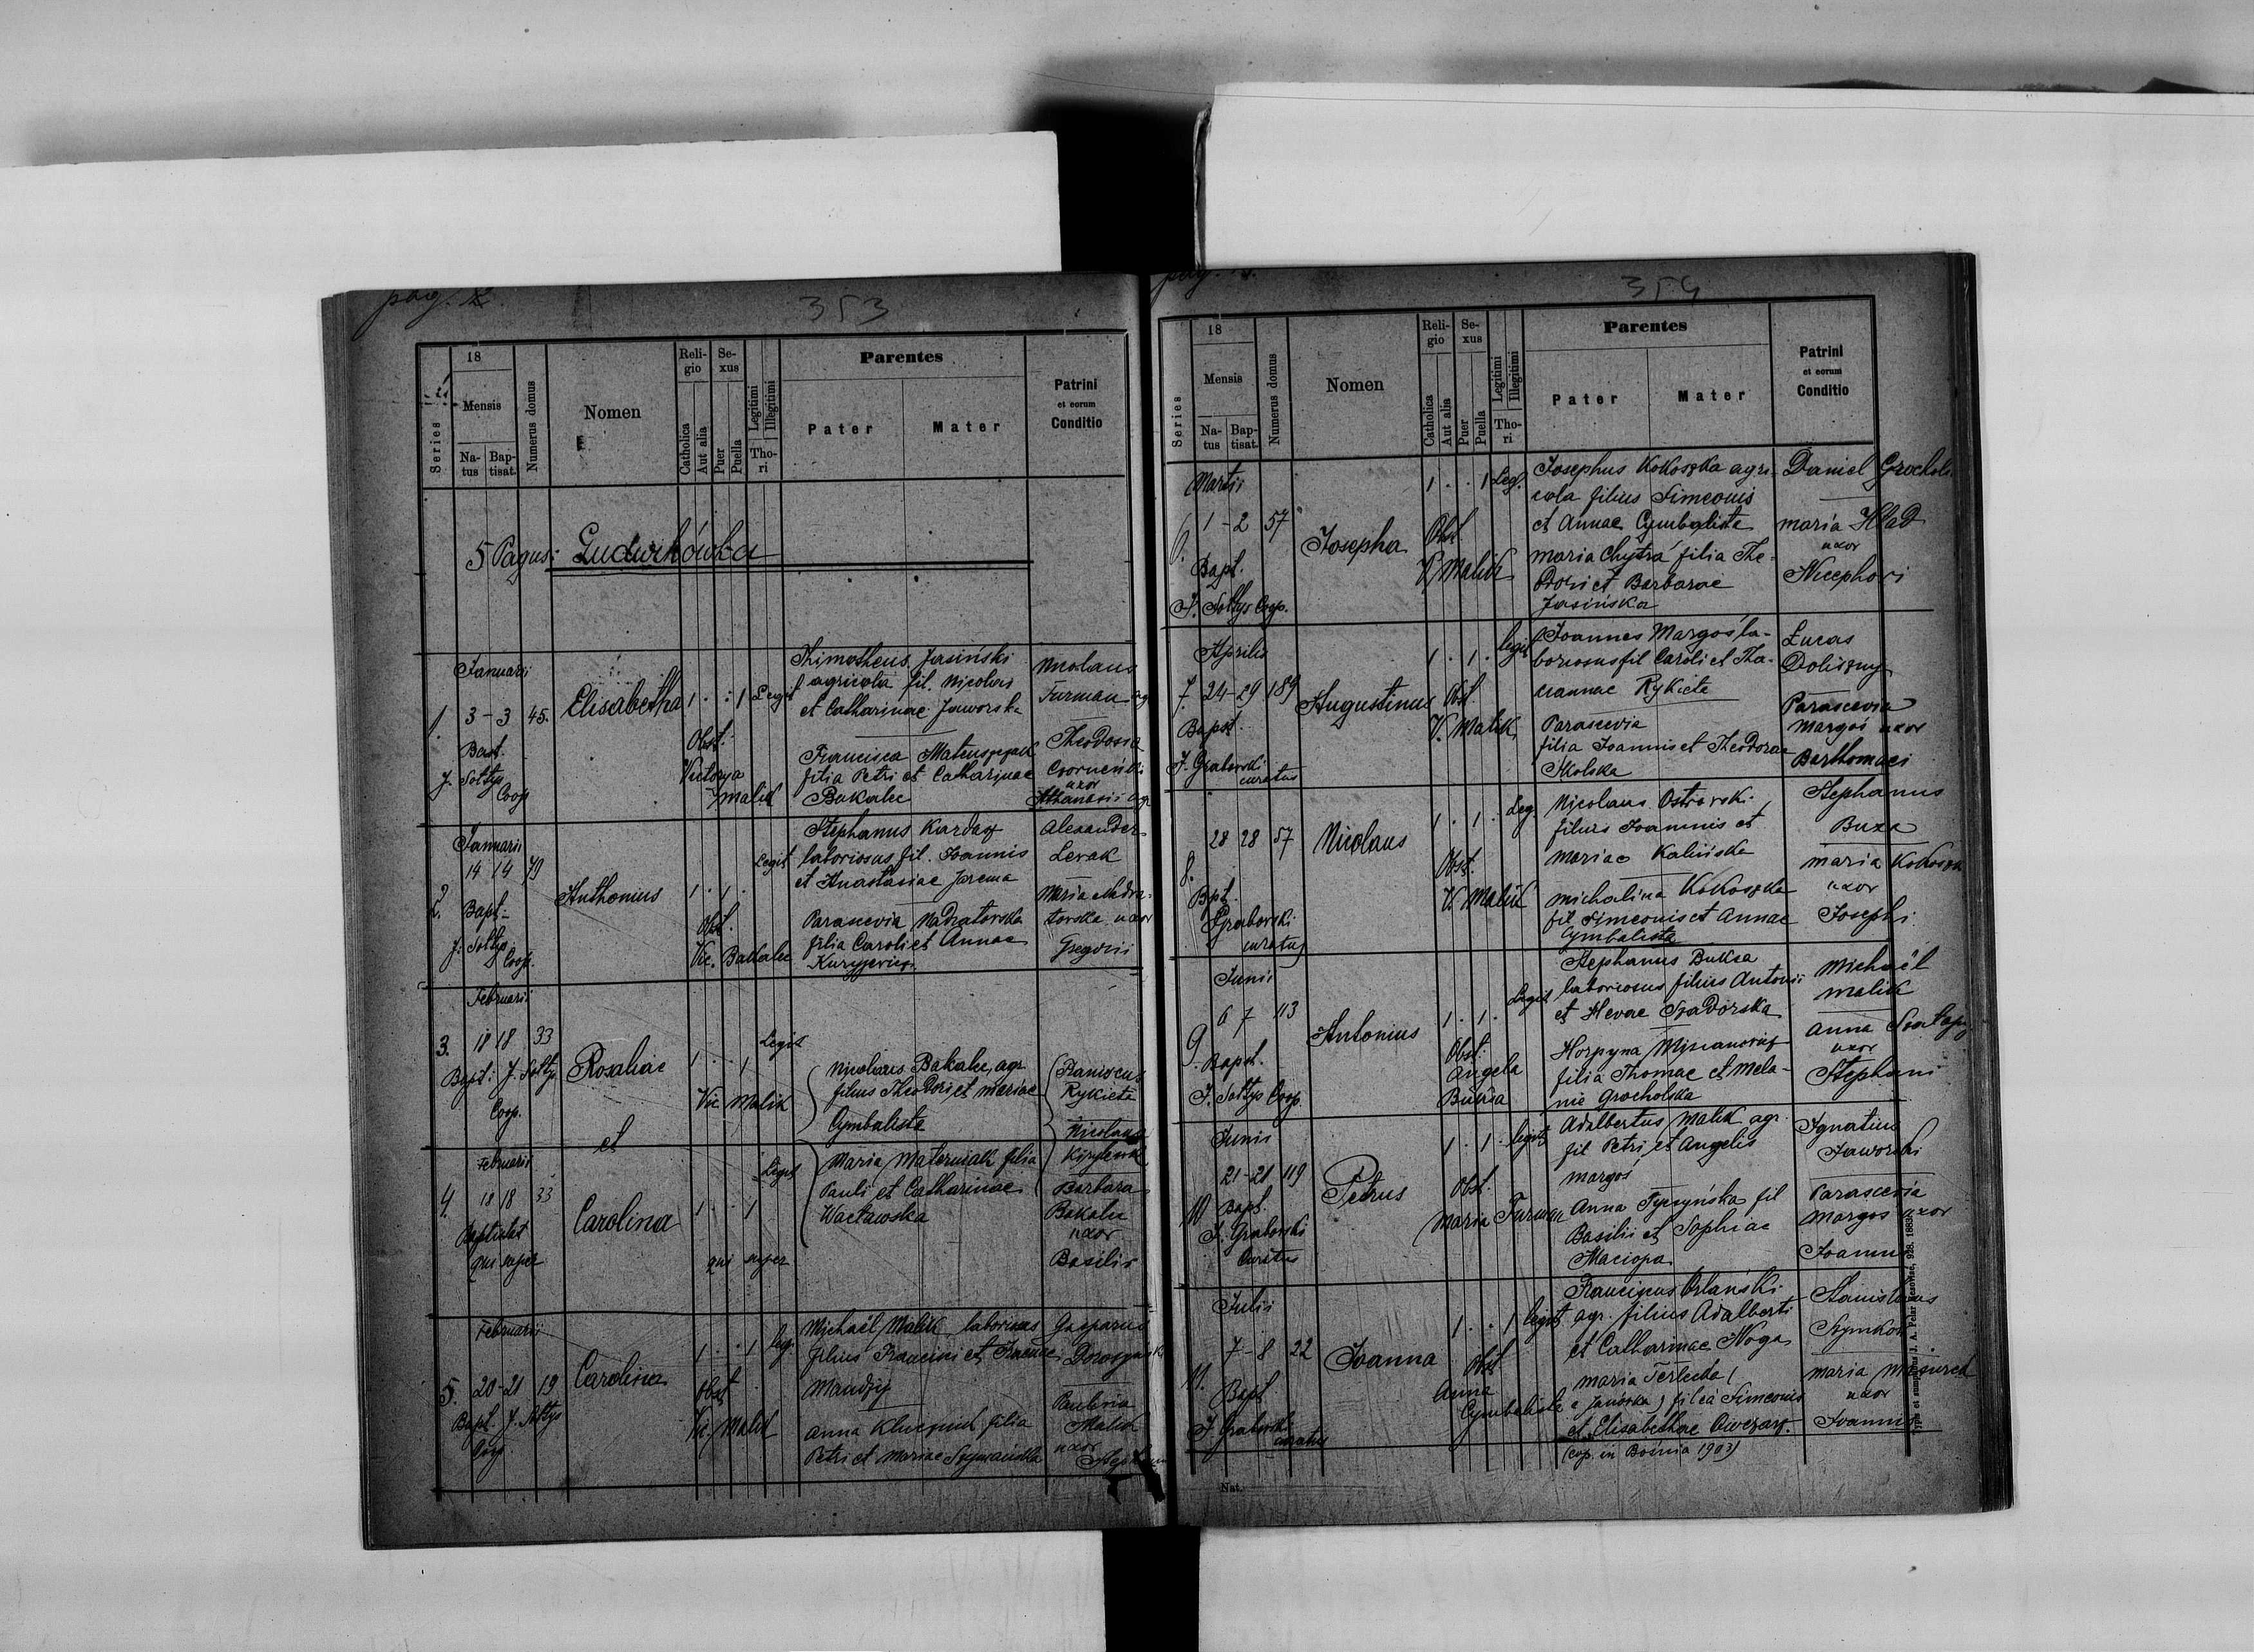 pag. 2.
353
18
Series
Mensis
Na-
tus
Bap-
tisat.
Numerus domus
Nomen
Reli-
gio
Catholica
Aut alia
Se-
xus
Puer
Puella
Legitimi
Illegitimi
Tho-
ri
Parentes
Pater
Mater
Patrini
et eorum
Conditio
5 Pagus: Ludwikówka
Januarii
1. 3 - 3 45.
Bapt.
J. Sołtys
Coop
Elisabetha
1 . . 1 Legit
Obst.
Victorya
Malik
Thimotheus Jasiński
agricola fil. Nicolai
et Catharinae Jaworska
Francisca Mateuszczak
filia Petri et Catharinae
Bakalec
Nicolaus
Furman ag
Theodosia
uxor
Athanasii agr
Januarii
2. 14 14 79
Bapt.
J. Sołtys
Coop.
Anthonius
1 . 1 . Legit
Obst.
Vic. Bakalec
Stephanus Kardasz
laboriosus fil. Joannis
et Anastasiae Jarema
Parascevia Nadratowska
filia Caroli et Annae
Kuryjewicz
Alexander
Levak
Maria Nadra-
towska uxor
Gregorii
Februarii
3. 18 18 33
Bapt: J. Sołtys
Coop.
Rosaliae
et
1 . . 1 Legit
Vic Malik
Nicolaus Bakalec, agr.
filius Theodori et Mariae
Cymbalista
Franiscus
Rykieta
Nicolaus
Februarii
4. 18 18 33
Baptisat
qui super
Carolina
1 . . 1 Legit
qui super
Maria Materniak filia
Pauli et Catharinae
Wacławska
Barbara
Bakalec
uxor
Basilii
Februarii
5. 20-21 19
Bapt. J. Sołtys
Coop
Carolina
1 . . 1 leg.
Obst
Vic. Malik
Michaël Malik laboriosus
filius Francisci et Irenae
Mandzij
Anna Klucznik filia
Petri et Mariae Szymańska
Gasparus
Paulina
Malik
uxor
354
18
Series
Mensis
Na-
tus
Bap-
tisat.
Numerus domus
Nomen
Reli-
gio
Catholica
Aut alia
Se-
xus
Puer
Puella
Legitimi
Illegitimi
Tho-
ri
Parentes
Pater
Mater
Patrini
et eorum
Conditio
Martii
6. 1 - 2 57
Bapt.
J. Sołtys Coop.
Josepha
1 . . 1 Leg.
Obst
V. Malik
Josephus Kokoszka agri-
cola filius Simeonis
et Annae Cymbalista
Maria Chytra filia The-
odori et Barbarae
Jasińska
Daniel Grochols
Maria Hład
uxor
Nicephori
Aprilis
7. 24-29 189
Bapt.
J. Grabowski
curatus
Augustinus
1 . 1 . legit
Obst.
V. Malik
Joannes Margoś la-
boriosus fil Caroli et Tha-
Rykieta
Parascevia
filia Joannis et Theodorae
Skolska
Lucas
Doliszny
Parascevia
Margoś uxor
Barthomaei
8. 28 28 57
Bpt.
Grabowski
curatus
Nicolaus
1 . 1 . Leg
Obst.
V. Malik
Nicolaus Ostrowski
filius Joannnis et
Mariae Kalińska
Michalina Kokoszka
fil Simeonis et Annae
Cymbalista
Stephanus
Buxa
Maria Kokoszka
uxor
Josephi
Junii
9. 6 7 113
Bapt.
J. Sołtys Coop.
Antonius
1 . 1 . Legit
Obst.
Angela
Buksa
Stephanus Buksa
laboriosus filius Antonii
et Hevae
Horpyna
filia Thomae et Mela-
nie Grocholska
Michaël
Malik
Anna
uxor
Stephani
Junii
10 21-21 119
Bapt.
J. Grabowski
Curatus
Petrus
1 . 1 . legit
Obst.
Maria Furman
Adalbertus Malik agr.
fil Petri et Angelis
Margoś
Anna Tyczyńska fil
Basilii et Sophiae
Maciopa
Ignatius
Jaworski
Parascevia
Margoś uxor
Joannis
Julii
11. 7 - 8 22
Bapt
J. Grabowski
curatus
Joanna
1 . . 1 legit
Obst
Anna
Cymbalista
Franciscus Orlański
agr. filius Adalberti
et Catharinae Noga
Maria Terlecka (
e Janoska) filia Simeonis
et Elisabethae Owczarz.
(cop. in Bośnia 1903)
Stanislaus
Maria Mazurek
uxor
Joannis
Nat.